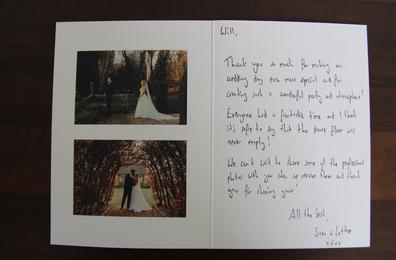 Will,
Thank you so much for making our
wedding day even more special and for
creating such a wonderful party and atmosphere!
Everyone had a fantastic time and I think
it's safe to say that the dance floor was
never empty!
We can't wait to share some of the professional
photos with you once we receive them and thank
you for sharing yours!
All the best,
Sam +
xxxx